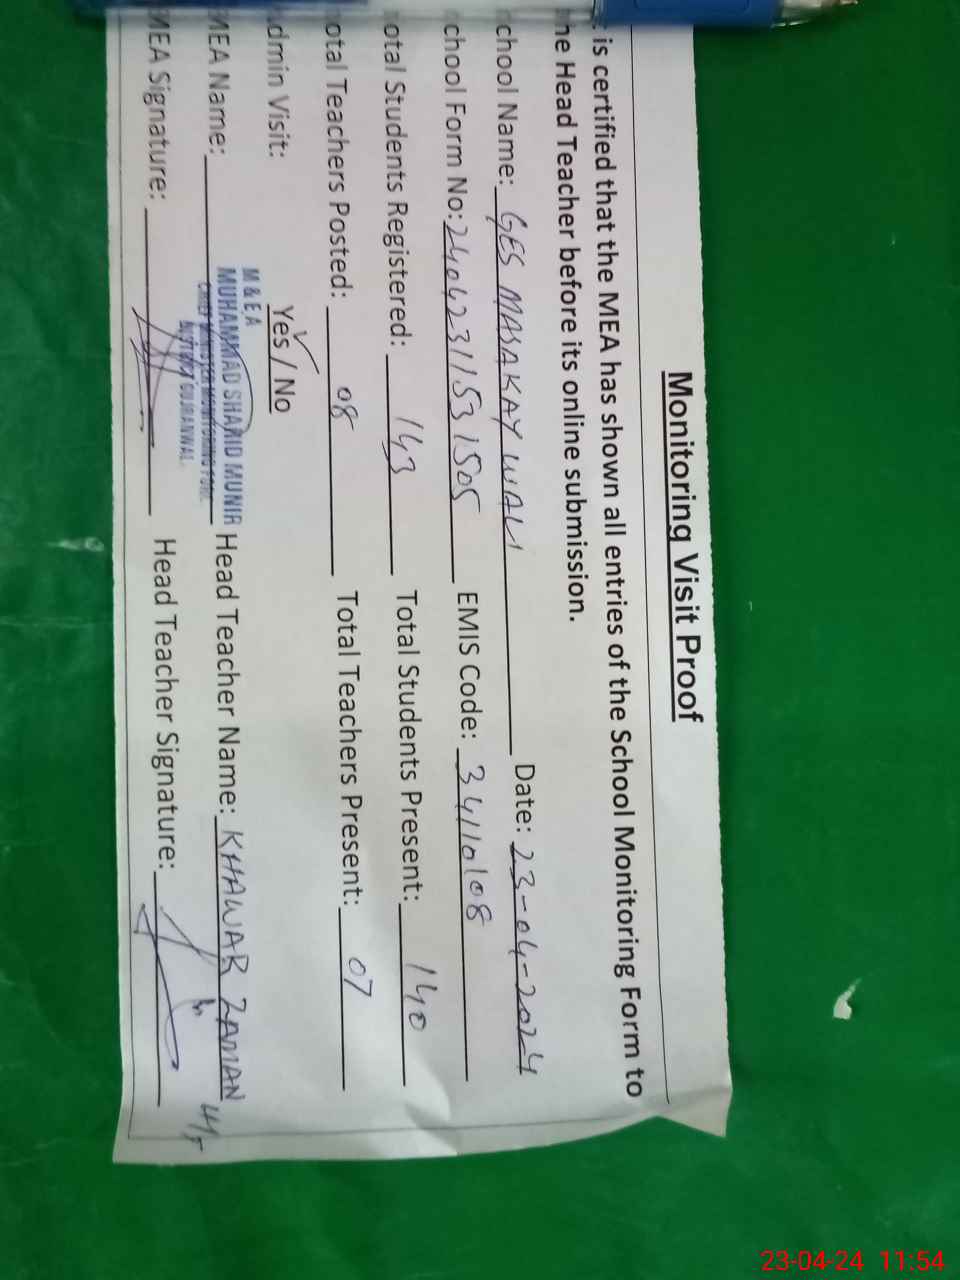 Monitoring Visit Proof
is certified that the MEA has shown all entries of the School Monitoring Form to
he Head Teacher before its online submission.
chool Name: GES MASAKAY WALI Date: 23-04-2024
chool Form No: 2404231531505 EMIS Code: 34110108
otal Students Registered: 143 Total Students Present: 140
otal Teachers Posted: 08 Total Teachers Present: 07
dmin Visit: Yes / No
M & E A
MUHAMMAD SHAHID MUNIR
MEA Name: Head Teacher Name: KHAWAR ZAMAN
CHIEF MINISTER MONITORING FORC
DISTRICT GUJRANWAL
MEA Signature: Head Teacher Signature:
23-04-24 11:54